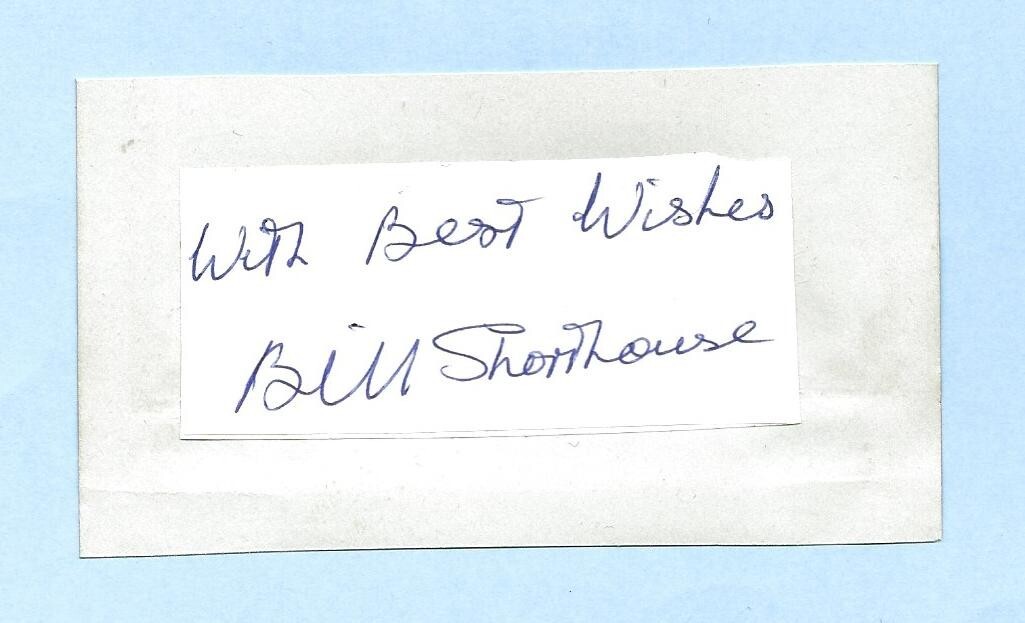 With Best Wishes
Bill Shorthouse